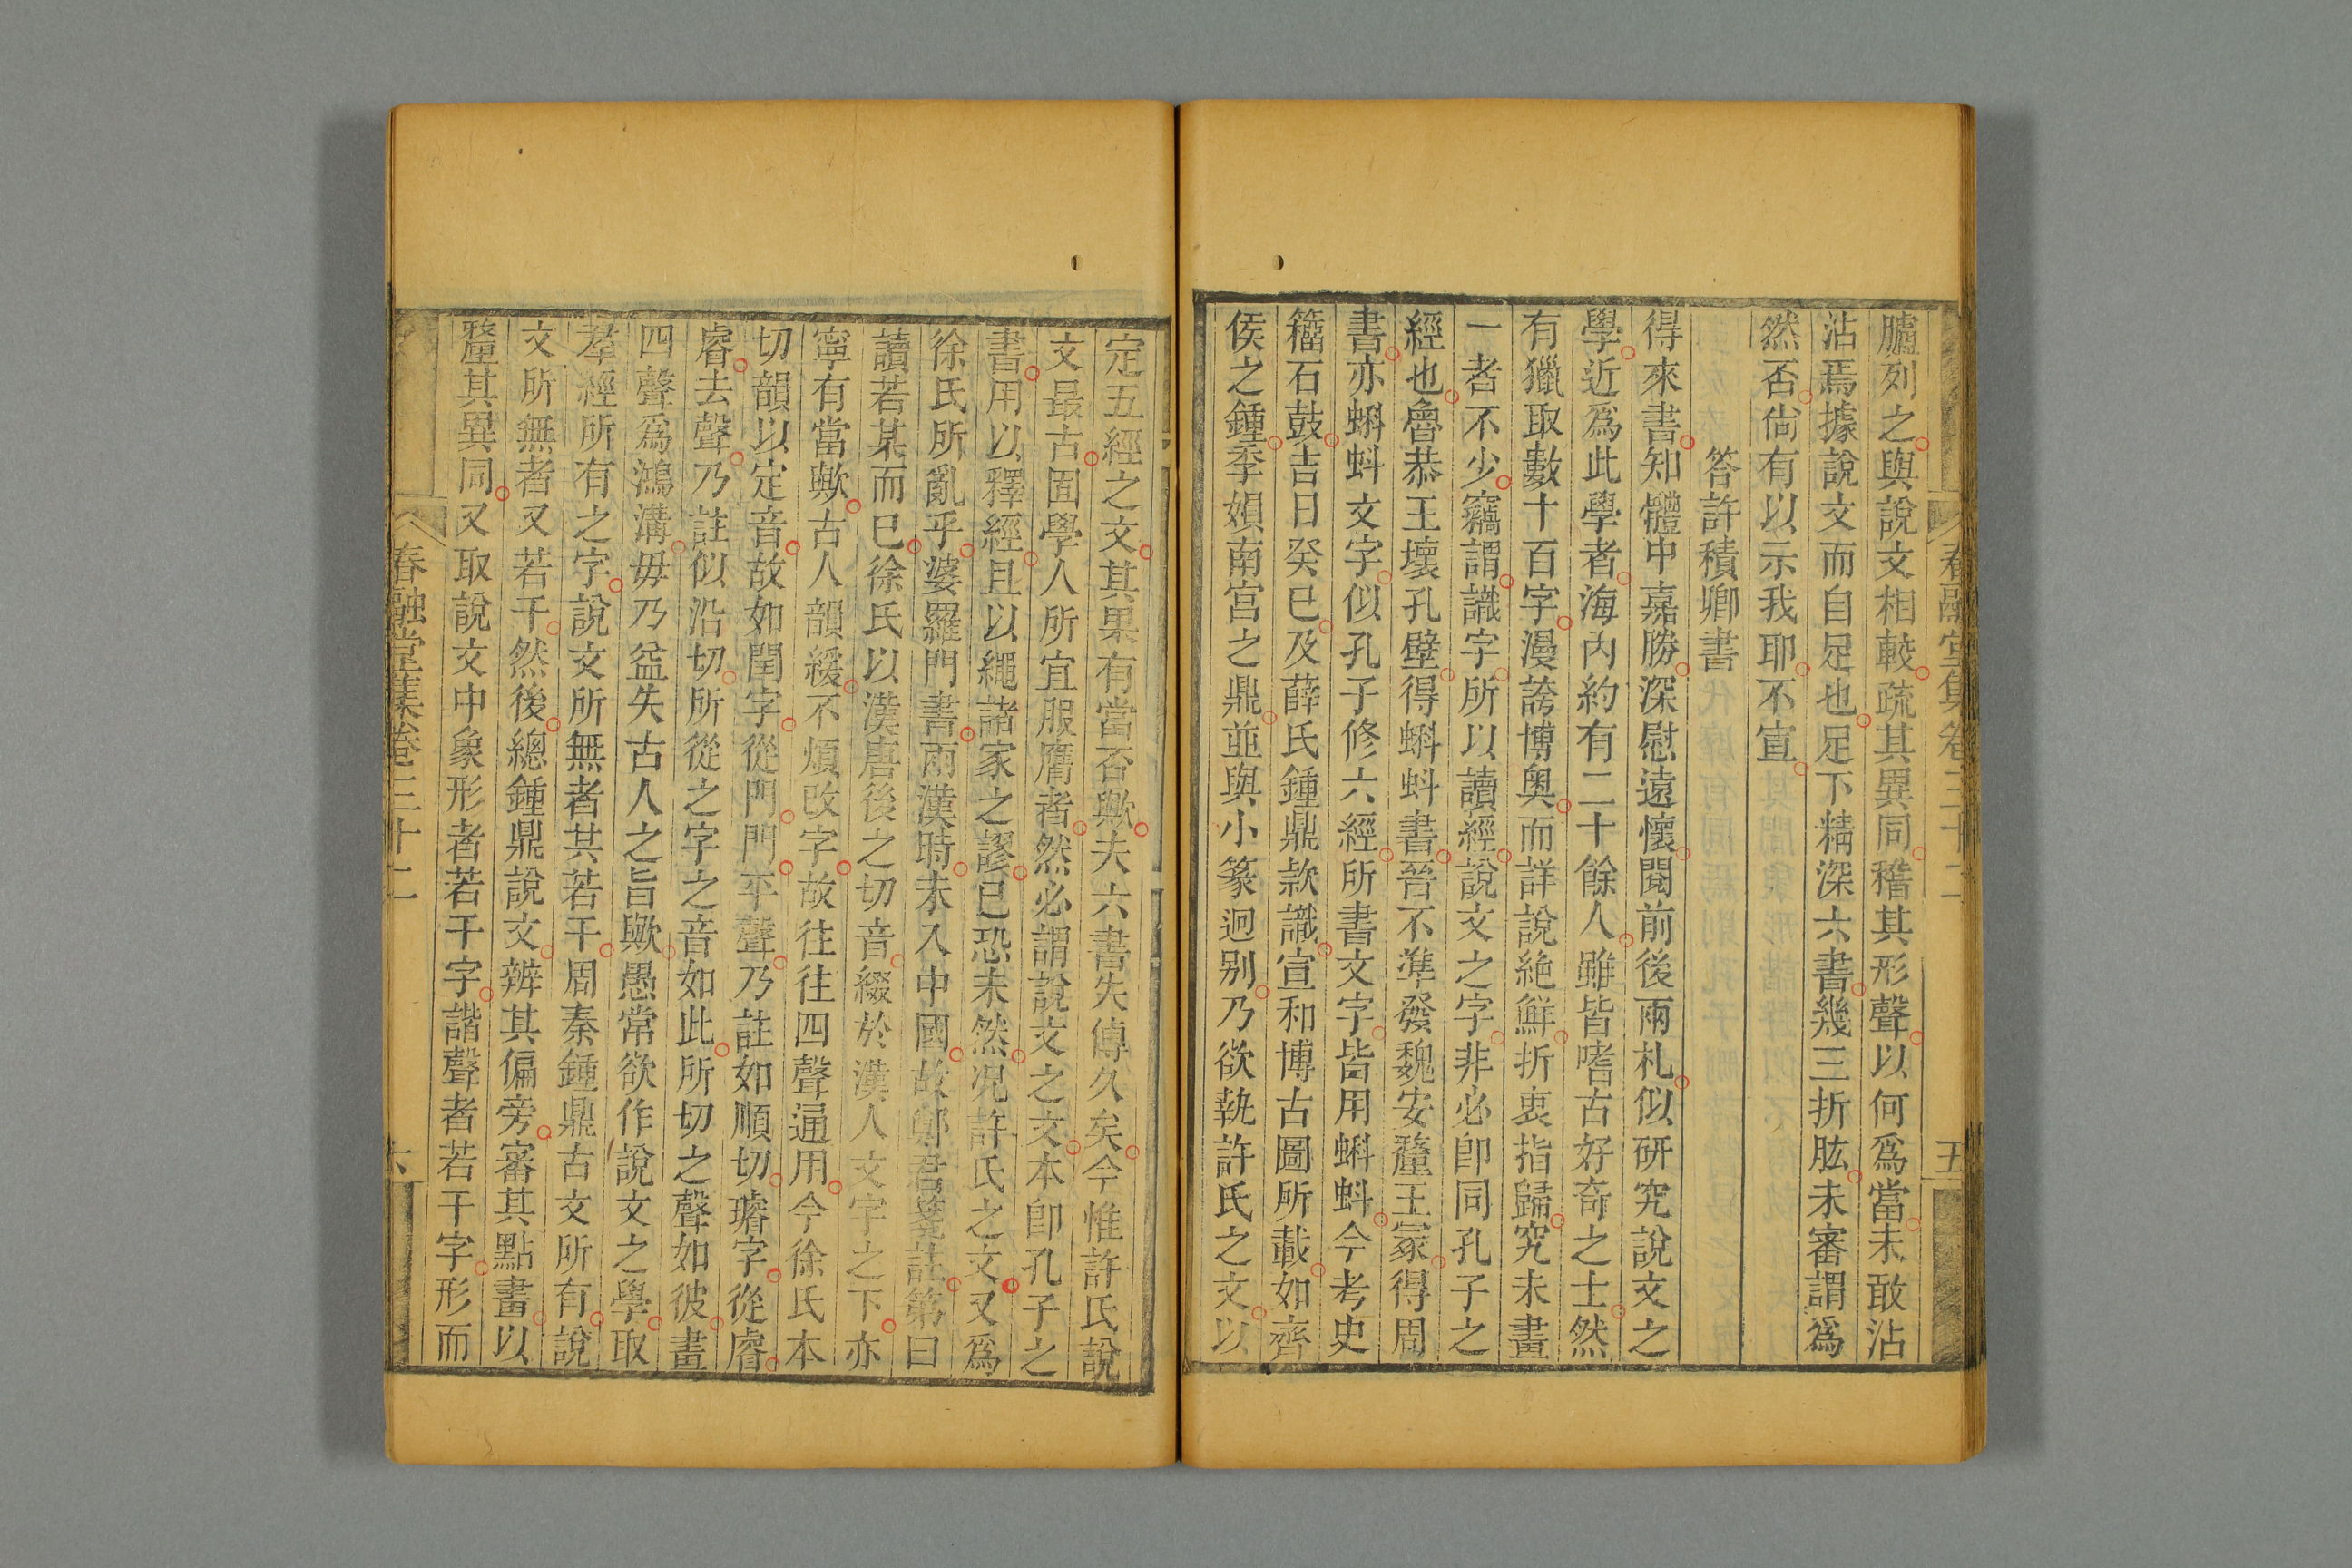 春融堂集卷三十二
五
臚列之與說文相較疏其異同稽其形聲以何爲當未敢沾
沾焉據說文而自足也足下精深六書幾三折肱未審謂爲
然否尙有以示我耶不宣
答許積卿書
得來書知體中嘉勝深慰遠懷閱前後兩札似研究說文之
學近爲此學者海內約有二十餘人雖皆嗜古好奇之士然
有獵取數十百字漫誇博奧而詳說絶鮮折衷指歸究未畫
一者不少竊謂識字所以讀經說文之字非必卽同孔子之
經也魯恭王壞孔壁得蝌蚪書晉不準發魏安釐王冢得周
書亦蝌蚪文字似孔子修六經所書文字皆用蝌蚪今考史
籒石鼓吉日癸巳及薛氏鍾鼎款識宣和博古圖所載如齊
侯之鍾季娟南宫之鼎並與小篆迥别乃欲執許氏之文以
定五經之文其果有當否歟夫六書失傳久矣今惟許氏說
文最古固學人所宜服膺者然必謂說文之文本卽孔子之
書用以釋經且以繩諸家之謬已恐未然况許氏之文又爲
徐氏所亂乎婆羅門書兩漢時未入中國故鄭君箋註第曰
讀若某而已徐氏以漢唐後之切音綴於漢人文字之下亦
寧有當歟古人韻緩不煩改字故往往四聲通用今徐氏本
切韻以定音故如閏字從門門平聲乃註如順切璿字從睿
睿去聲乃註似沿切所從之字之音如此所切之聲如彼畫
四聲爲鴻溝毋乃益失古人之旨歟愚常欲作說文之學取
羣經所有之字說文所無者其若干周秦鍾鼎古文所有說
文所無者又若干然後總鍾鼎說文辨其偏旁審其點畫以
釐其異同又取說文中象形者若干字諧聲者若干字形而
春融堂集卷三十二
六